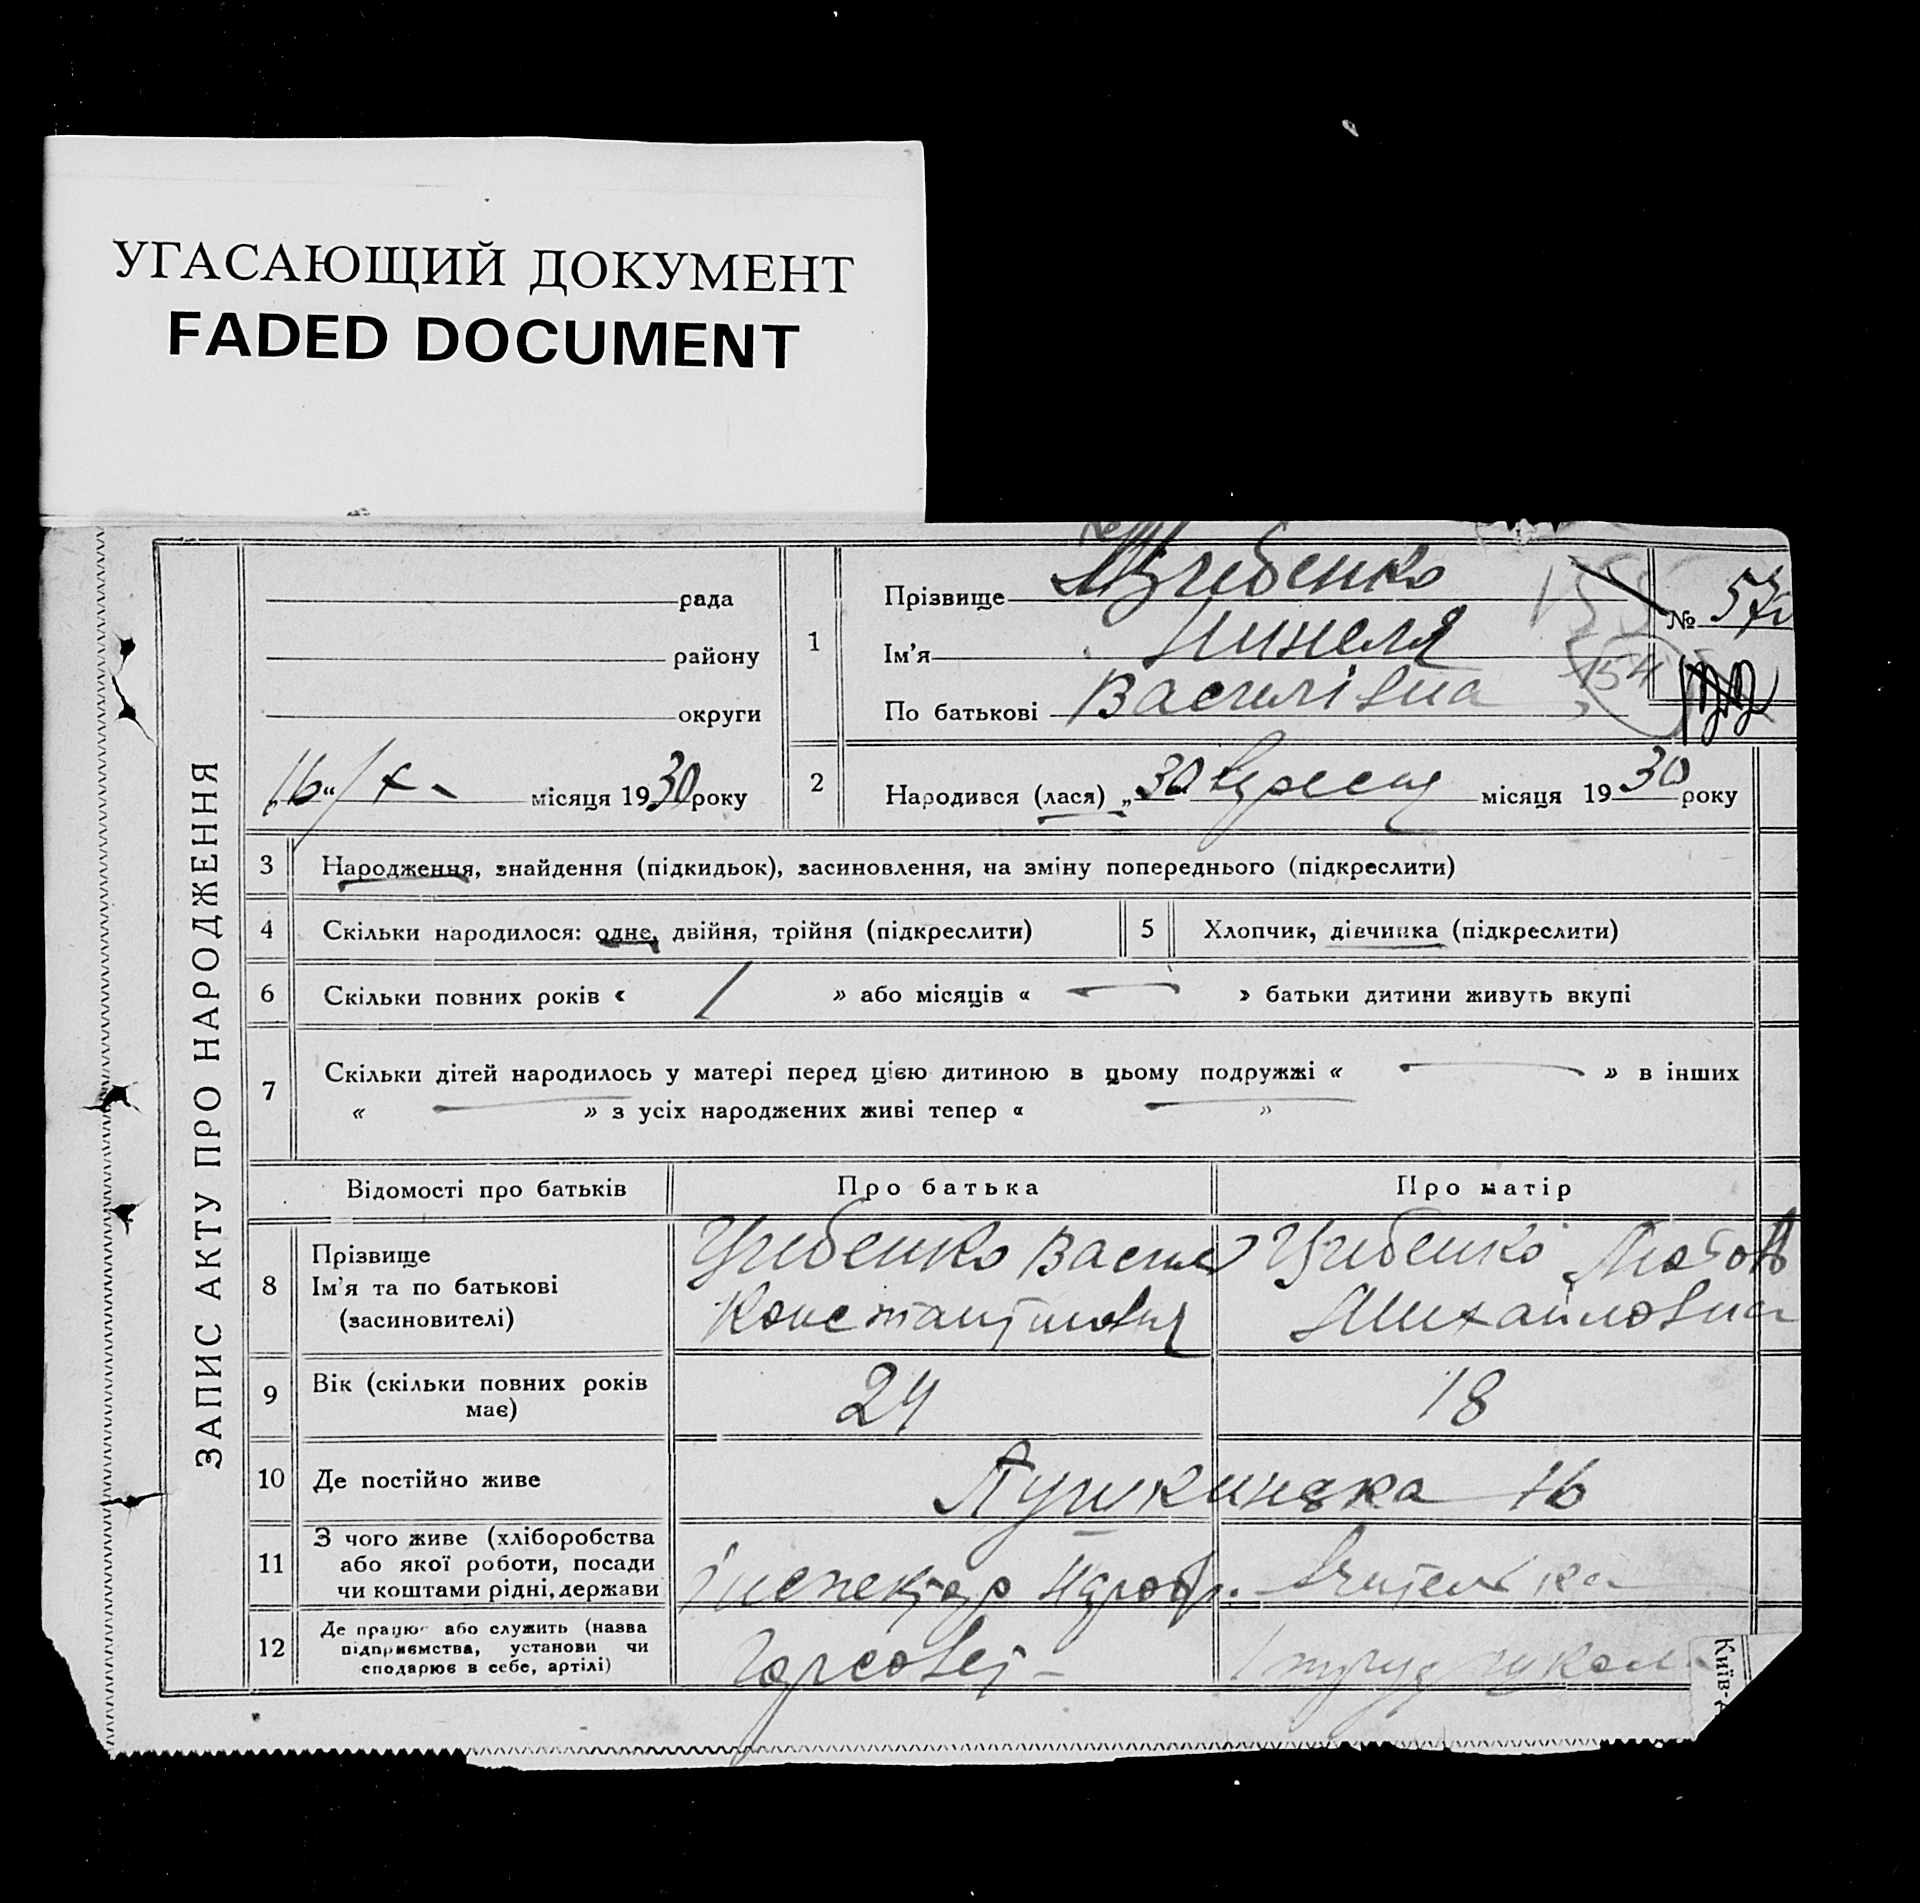 УГАСАЮЩИЙ ДОКУМЕНТ
FADED DOCUMENT
ЗАПИС АКТУ ПРО НАРОДЖЕННЯ
рада
району
округи
„16“ X - місяця 1930 року
1
Прізвище
Ім'я Нинеля
По батькові Василівна
№ 57
154
2
Народився (лася) „30 вересня місяця 1930 року
3 Народження, знайдення (підкидьок), засиновлення, на зміну попереднього (підкреслити)
4 Скільки народилося: одне, двійня, трійня (підкреслити)
5 Хлопчик, дівчинка (підкреслити)
6 Скільки повних років « / » або місяців « — » батьки дитини живуть вкупі
7 Скільки дітей народилось у матері перед цією дитиною в цьому подружжі « — » в інших
« — » з усіх народжених живі тепер « — »
Відомості про батьків
Про батька
Про матір
8
Прізвище
Ім'я та по батькові
(засиновителі)
Василь
Константинович
Любов
Михайловна
9
Вік (скільки повних років
має)
24
18
10 Де постійно живе
Пушкинська 16
11
З чого живе (хліборобства
або якої роботи, посади
чи коштами рідні, держави
інспектор
Вчителька
12
Де працює або служить (назва
підприємства, установи чи
сподарює в себе, артілі)
Горсовет -
Київ-